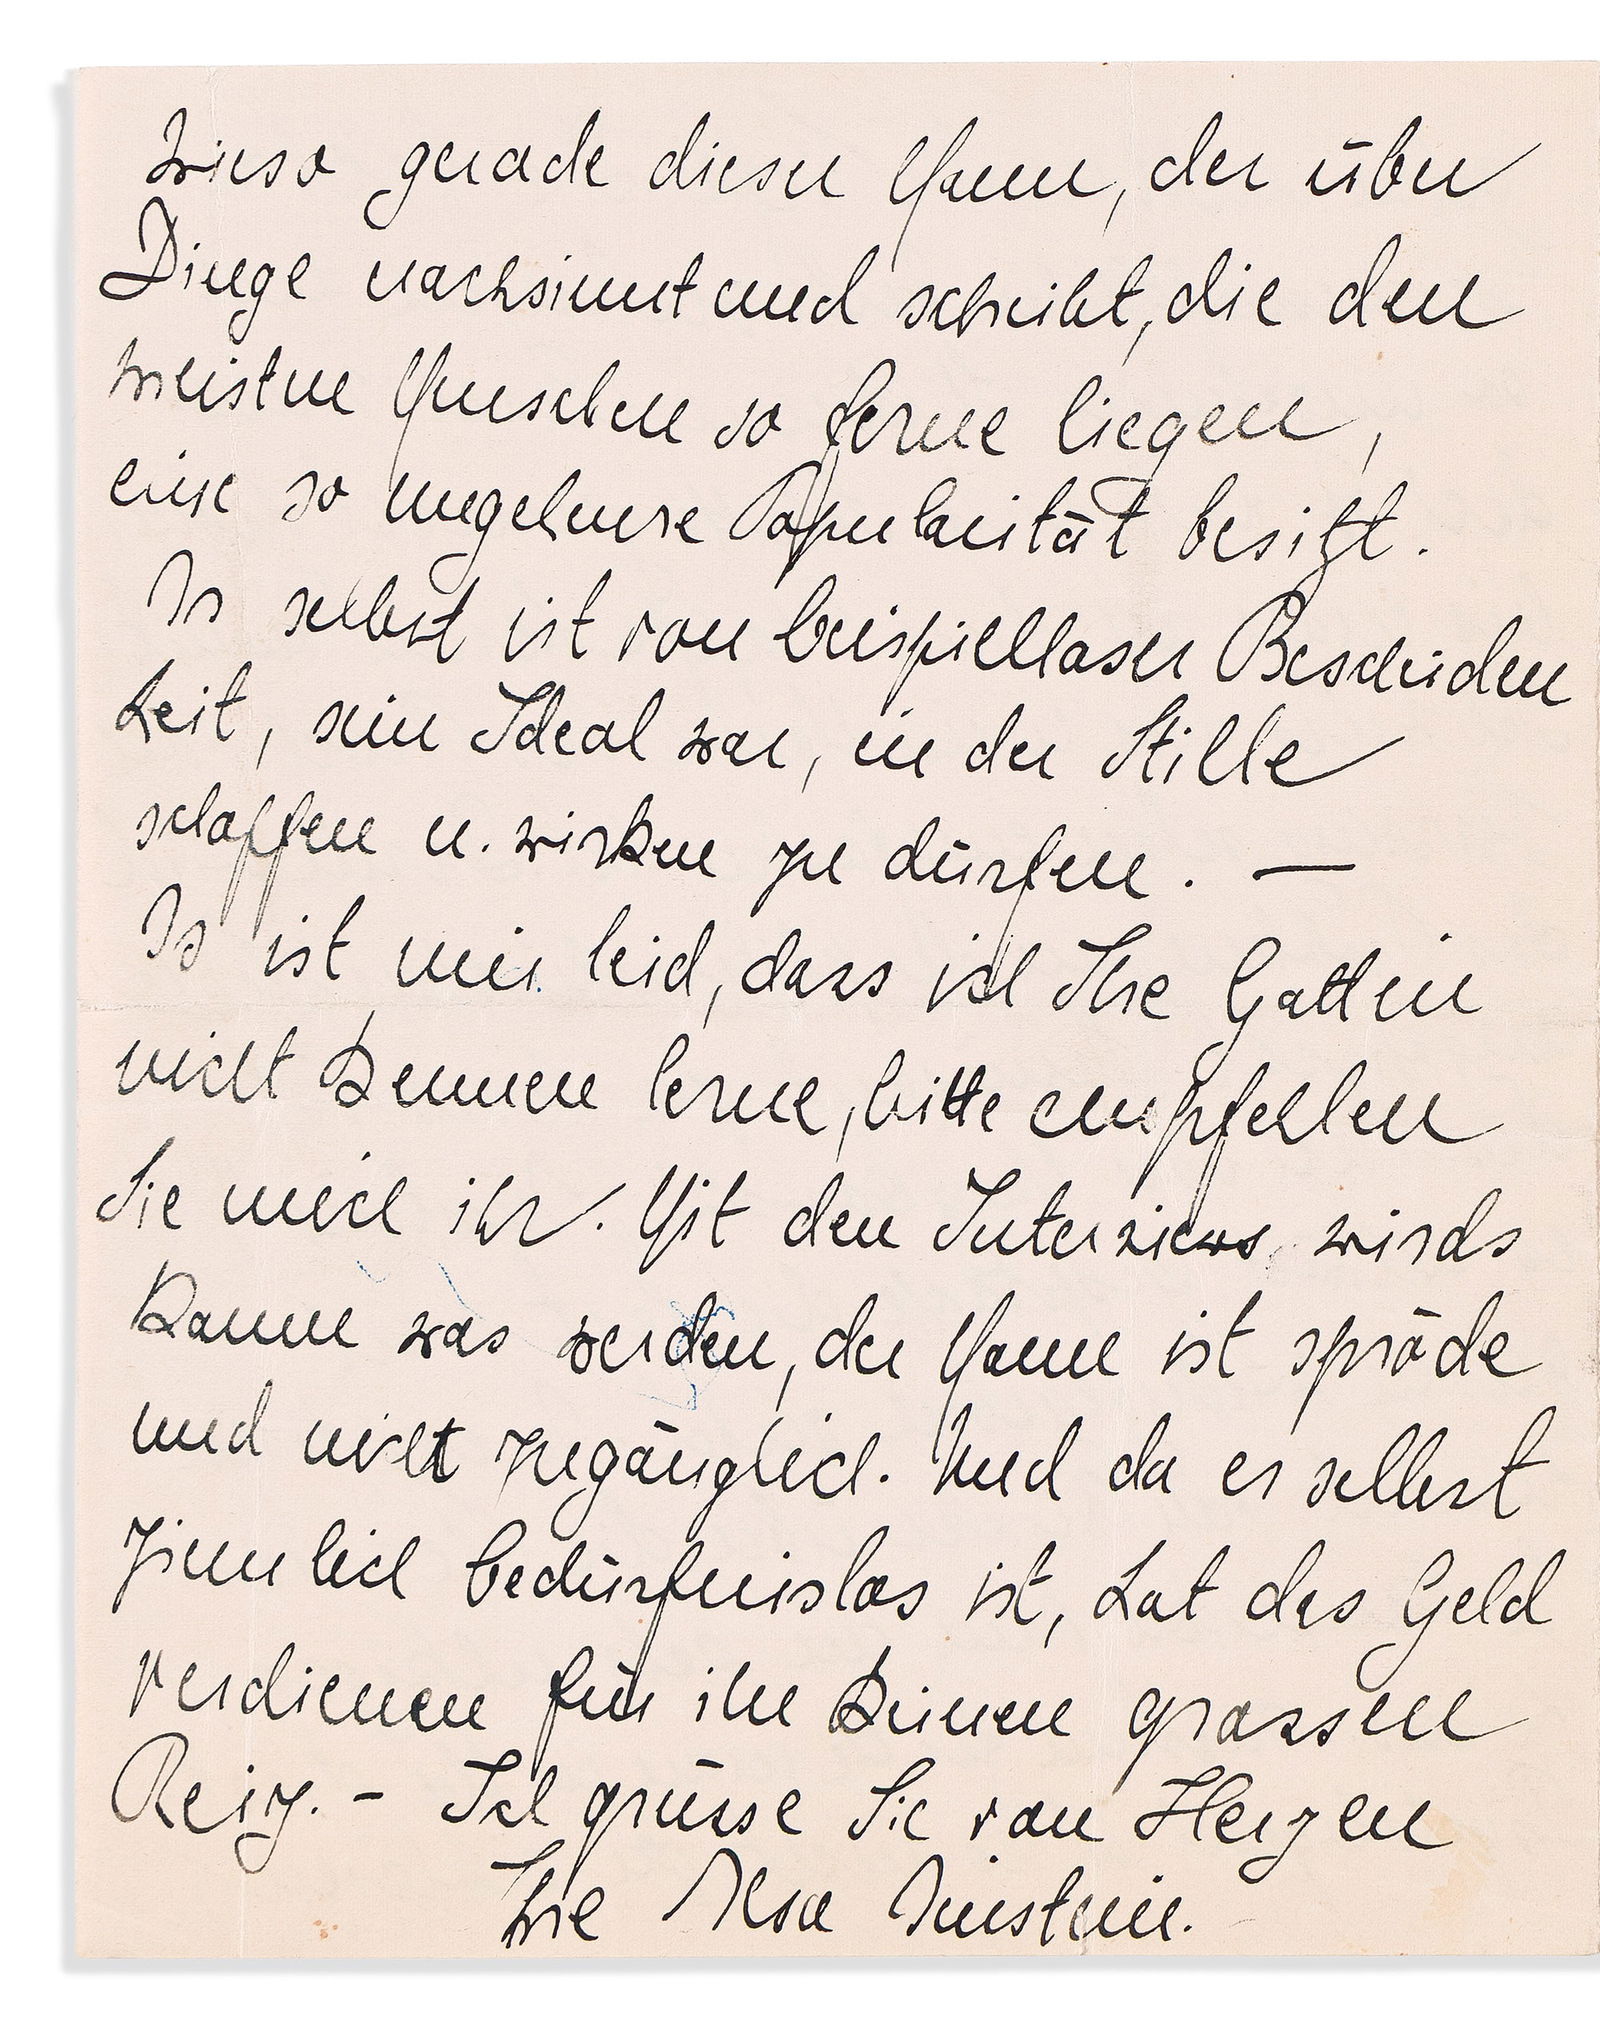 wieso gerade dieser Mann, der über
Dinge nachsinnt und schreibt, die den
meisten Menschen so ferne liegen,
eine so ungeheure Popularität besitzt.
Er selbst ist von beispielloser Bescheiden
heit, sein Ideal war, in der Stille
schaffen u. wirken zu dürfen. —
Es ist mir leid, dass ich Ihre Gattin
nicht kennen lerne, bitte empfehlen
Sie mich ihr. Mit den Interviews wirds
kaum was werden, der Mann ist spröde
und nicht zugänglich. Und da er selbst
ziemlich bedürfnislos ist, hat das Geld
verdienen für ihn keinen grossen
Reiz. – Ich grüsse Sie von Herzen
Ihre Elsa Einstein.